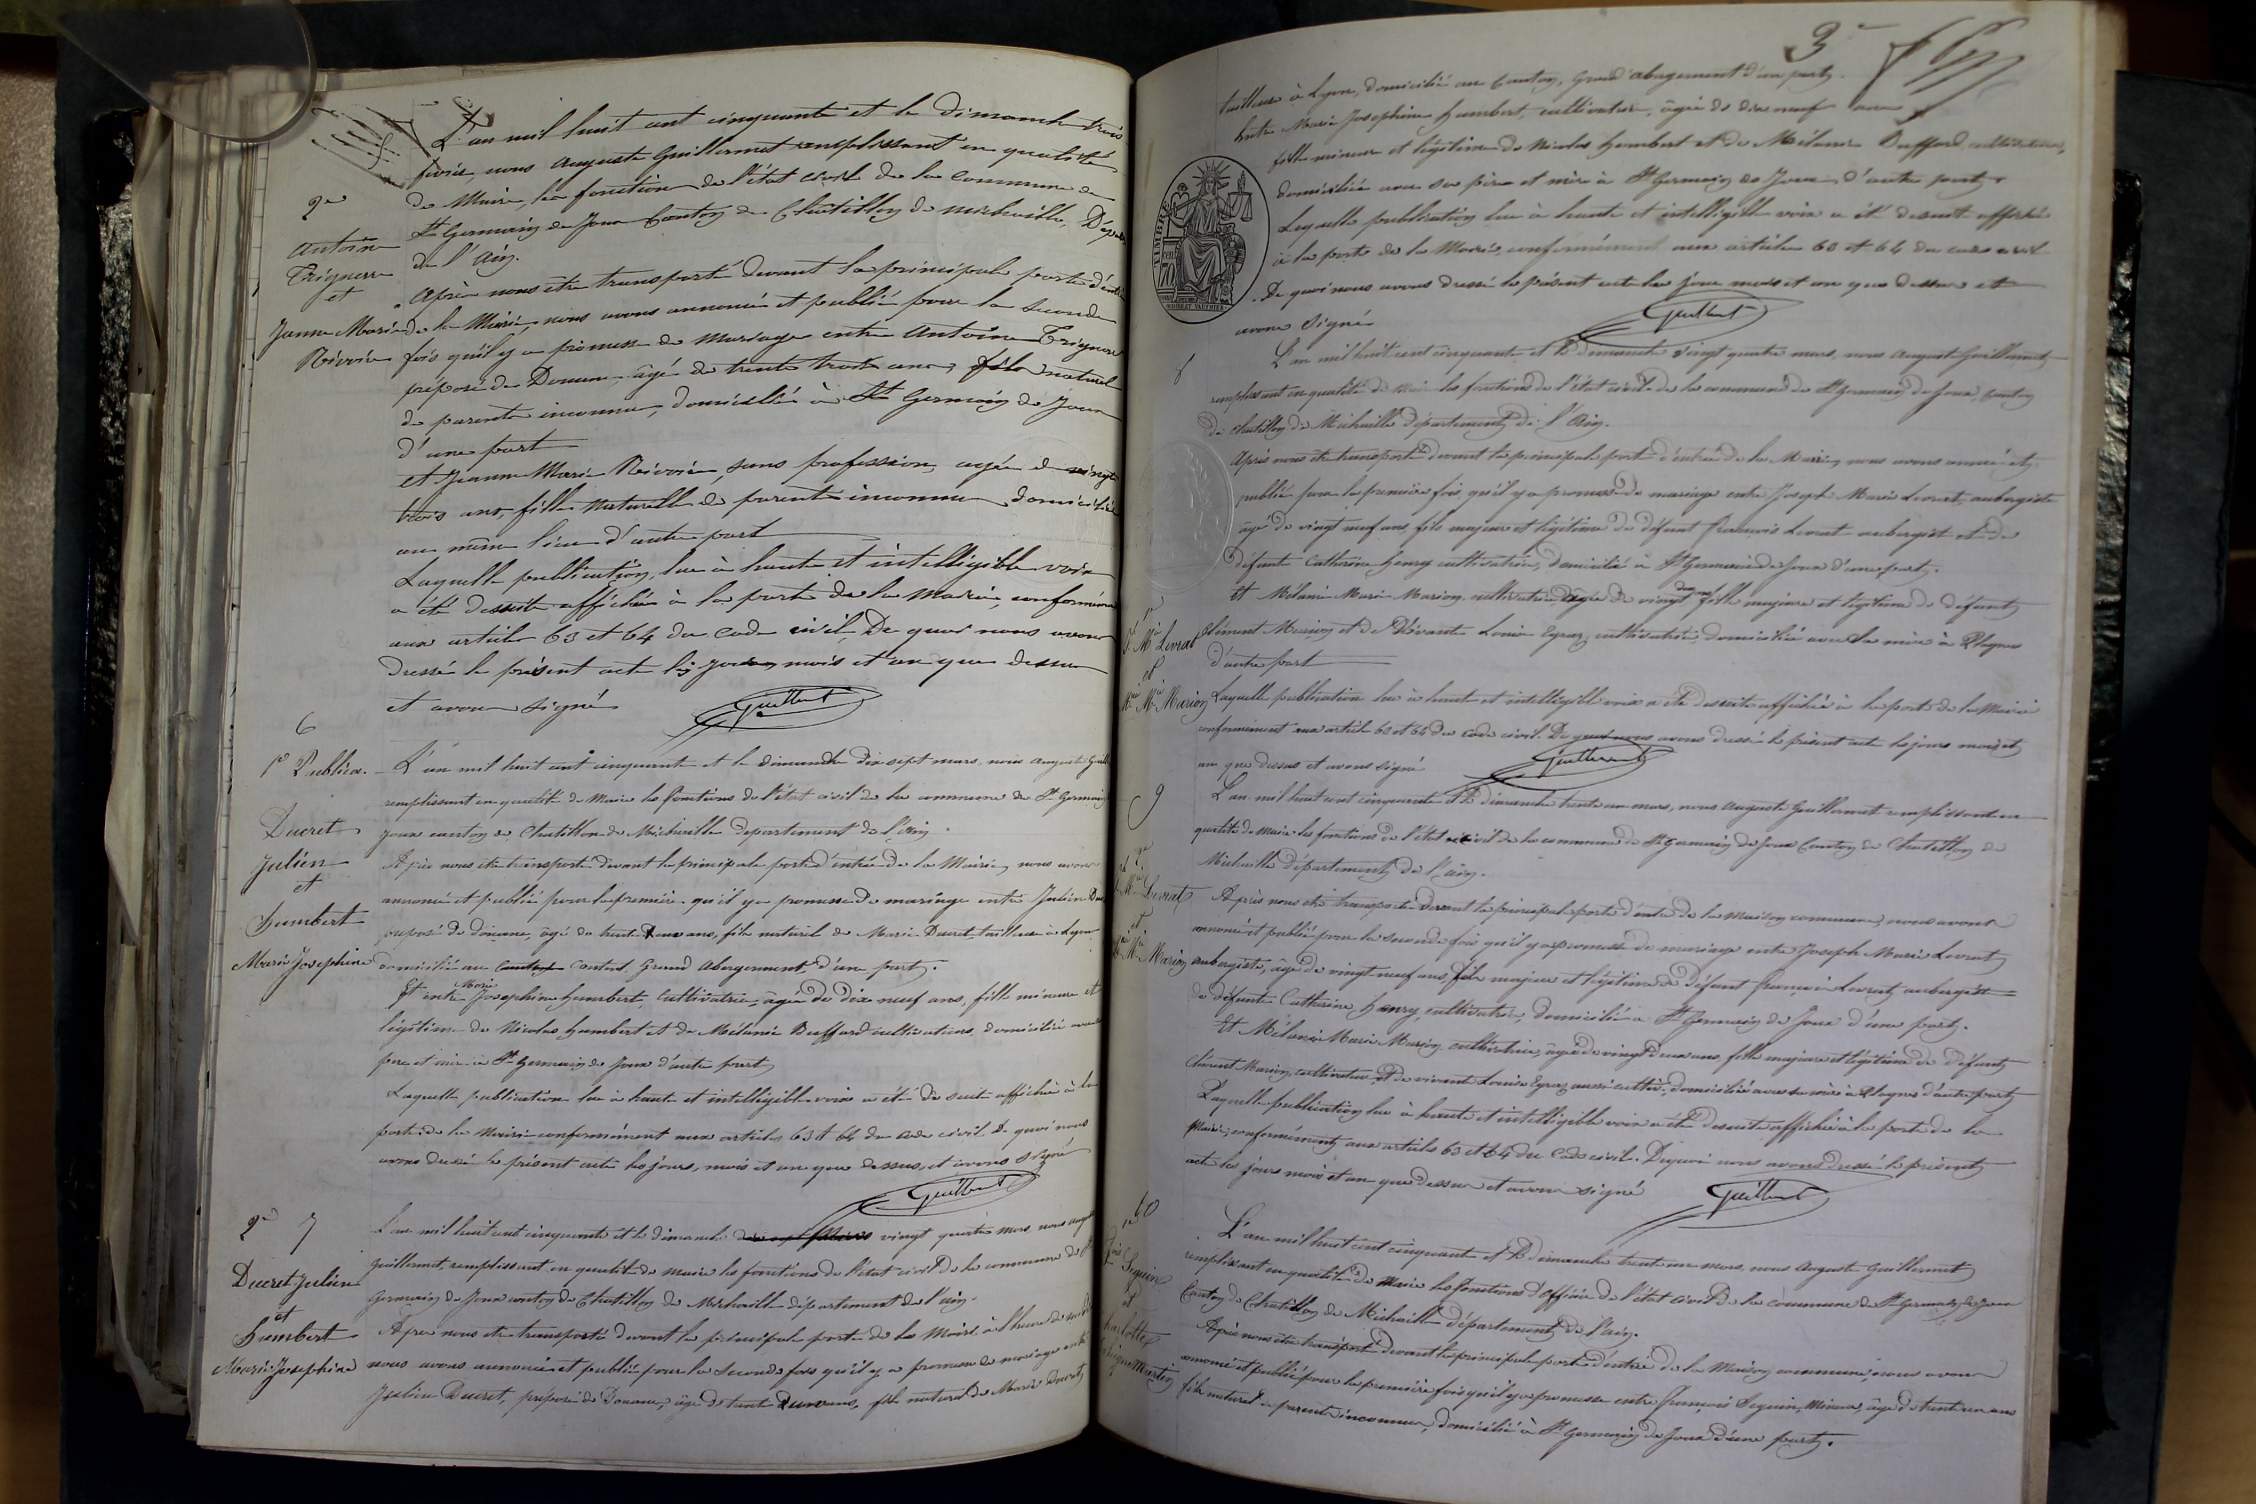 L'an mil huit cent cinquante et le Dimanche trois
février nous Auguste Guillermet remplissant en qualité
de Maire, les fonctions de l'état civil de la Commune de
St Germain de Joux Canton de Châtillon de Michaille, Dépar
de l'Ain.
2e
Antoine
Trignere
et
Jeanne Marie
Révérie
Après nous être transporté devant la principale porte d'entrée
de la Mairie, nous avons annoncé et publié pour la seconde
fois qu'il y a promesse de mariage entre Antoine
préposé de Douane, âgé de trente trois ans, fils naturel
de parents inconnus, domicilié à St Germain de Joux
d'une part
et Jeanne Marie sans profession, agée de vingt
trois ans, fille naturelle de parents inconnus domiciliée
au même lieu d'autre part
Laquelle publication, lue à haute et intelligible voix
a été desuite affichée à la porte de la Mairie, conformément
aux articles 63 et 64 du Code civil. De quoi nous avons
dressé le présent acte les jour, mois et an que dessus
et avons signé
Guillermet
6
1e Publica.
Ducret
Julien
et
Humbert
Marie Josephine
L'an mil huit cent cinquante et le Dimanche dix sept mars, nous Auguste Guill
remplissant en qualité de Maire les fonctions de l'état civil de la commune de St Germain
Joux canton de Chatillon de Michaille departement de l'Ain.
Après nous être transporté devant la principale porte d'entrée de la Mairie, nous avons
annoncé et publié pour la première qu'il y a promesse de mariage entre Julien Du
preposé de douane, âgé de trente deux ans, fils naturel de Marie Ducret tailleuse à Lyon
domicilié au canton Grand Abergement, d'une part.
Et entre Marie Josephine Humbert, cultivatrice, âgée de dix neuf ans, fille mineure et
légitime de Nicolas Humbert et de Mélanie Buffard cultivateurs, domiciliée avec
père et mère à St Germain de Joux d'autre part
Laquelle publication lue à haute et intelligible voix a été de suite affichée à la
porte de la Mairie conformément aux articles 63 et 64 du Code civil. De quoi nous
avons dressé le présent acte les jours, mois et an que dessus, et avons signé
Guillermet
2e 7
Ducret Julien
et
Humbert
Marie Josephine
L'an mil huit cent cinquante et le dimanche vingt quatre mars nous Auguste
Guillermet, remplissant en qualité de maire les fonctions de l'état civil de la commune de St
Germain de Joux canton de Chatillon de Michaille département de l'ain.
Après nous être transporté devant la principale porte de la Mairie à l'heure de
nous avons annoncé et publié pour la seconde fois qu'il y a promesse de mariage entre
Julien Ducret, préposé de Douane, âgé de trente deux ans, fils naturel de Marie Ducret
3e
tailleuse à Lyon, domicilié au Canton, Grand abergement d'une part.
entre Marie Josephine Humbert, cultivatrice, âgée de dix neuf ans
fille mineure et légitime de Nicolas Humbert et de Mélanie Buffard cultivateurs,
domiciliée avec ses père et mère à St Germain de Joux, d'autre part.
Laquelle publication lue à haute et intelligible voix a été desuite affichée
à la porte de la Mairie, conformément aux articles 63 et 64 du code civil
De quoi nous avons dressé le présent acte les jour mois et an que dessus et
avons signé
Guillermet
TIMBRE
70
8
L'an mil huit cent cinquante et le dimanche vingt quatre mars, nous Auguste Guillermet
remplissant en qualité de maire les fonctions de l'état civil de la commune de St Germain de Joux canton
de Chatillon de Michaille département de l'Ain.
Après nous être transporté devant la principale porte d'entrée de la Mairie, nous avons annoncé et
publié pour la première fois, qu'il y a promesse de mariage entre Joseph Marie Levrat, aubergiste
âgé de vingt neuf ans, fils majeur et légitime de défunt François Levrat aubergiste et de
défunte Catherine Henry cultivatrice, domicilié à St Germain de Joux d'une part.
Et Mélanie Marie Marion cultivatrice âgée de vingt deux ans fille majeure et légitime de défunt
1e
Jh Mie Levrat
et
Mie Mie Marion
Clément Marion et de vivante Louise Egraz, cultivatrice, domiciliée avec sa mère à Plagnes
d'autre part
Laquelle publication lue à haute et intelligible voix a été desuite affichée à la porte de la Mairie
conformément aux articles 63 et 64 du Code civil. De quoi nous avons dressé le présent acte les jours mois et
an que dessus et avons signé
Guillermet
9
L'an mil huit cent cinquante et le dimanche trente un mars, nous Auguste Guillermet remplissant en
qualité de maire les fonctions de l'état civil de la commune de St Germain de Joux Canton de Chatillon de
Michaille département de l'ain.
2e
Jh Mie Levrat
et
Mie Mie Marion
Après nous être transporté devant la principale porte d'entrée de la maison commune, nous avons
annoncé et publié pour la seconde fois qu'il y a promesse de mariage entre Joseph Marie Levrat
aubergiste, âgé de vingt neuf ans, fils majeur et légitime de défunt François Levrat aubergiste
de défunte Catherine Henry, cultivatrice, domicilié à St Germain de Joux d'une part.
Et Mélanie Marie Marion cultivatrice, âgée de vingt deux ans, fille majeure et légitime de défunt
Clément Marion, cultivateur et de vivante Louise Egraz aussi cultiv., domiciliée avec sa mère à Plagnes d'autre part
Laquelle publication lue à haute et intelligible voix a été desuite affichée à la porte de la
Mairie, conformément aux articles 63 et 64 du Code civil. De quoi nous avons dressé le présent
acte les jours mois et an que dessus et avons signé
Guillermet
10
1e
Fois Seguin
et
Charlotte
Martin
L'an mil huit cent cinquante et le dimanche trente un mars, nous Auguste Guillermet
remplissant en qualité de Maire les fonctions d'officier de l'état civil de la commune de St Germain de Joux
Canton de Chatillon de Michaille département de l'ain.
Après nous être transporté devant la principale porte d'entrée de la Maison commune, nous avons
annoncé et publié pour la première fois qu'il y a promesse entre François Seguin, Mineur, âgé de trente un ans
fils naturel de parents inconnus, domicilié à St Germain de Joux d'une part.